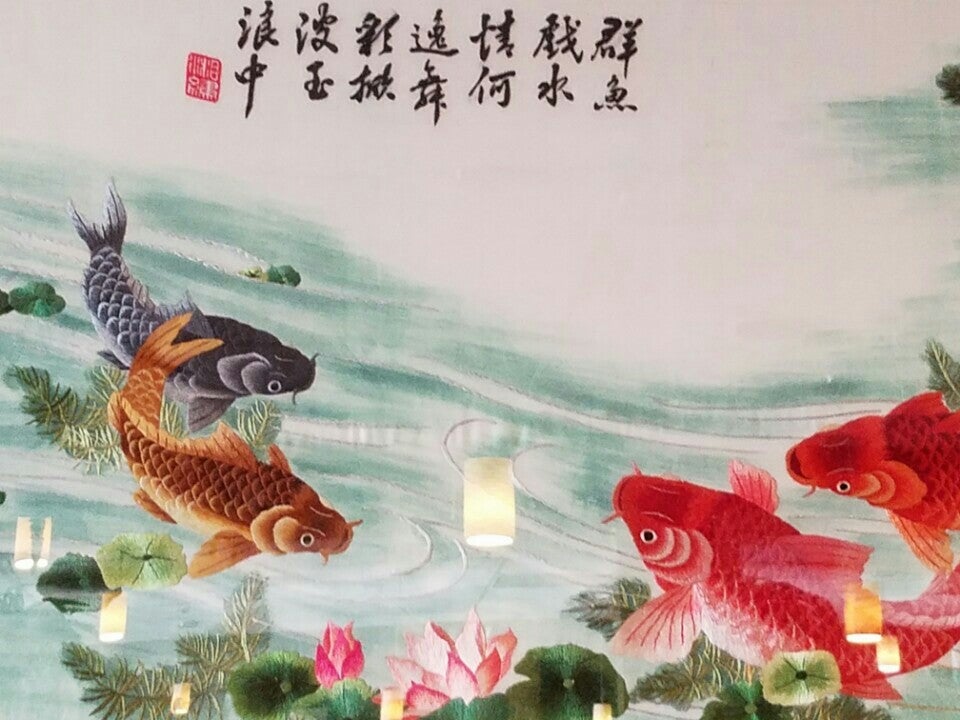 群魚
戲水
情何
逸舞
彩掀
波玉
浪中